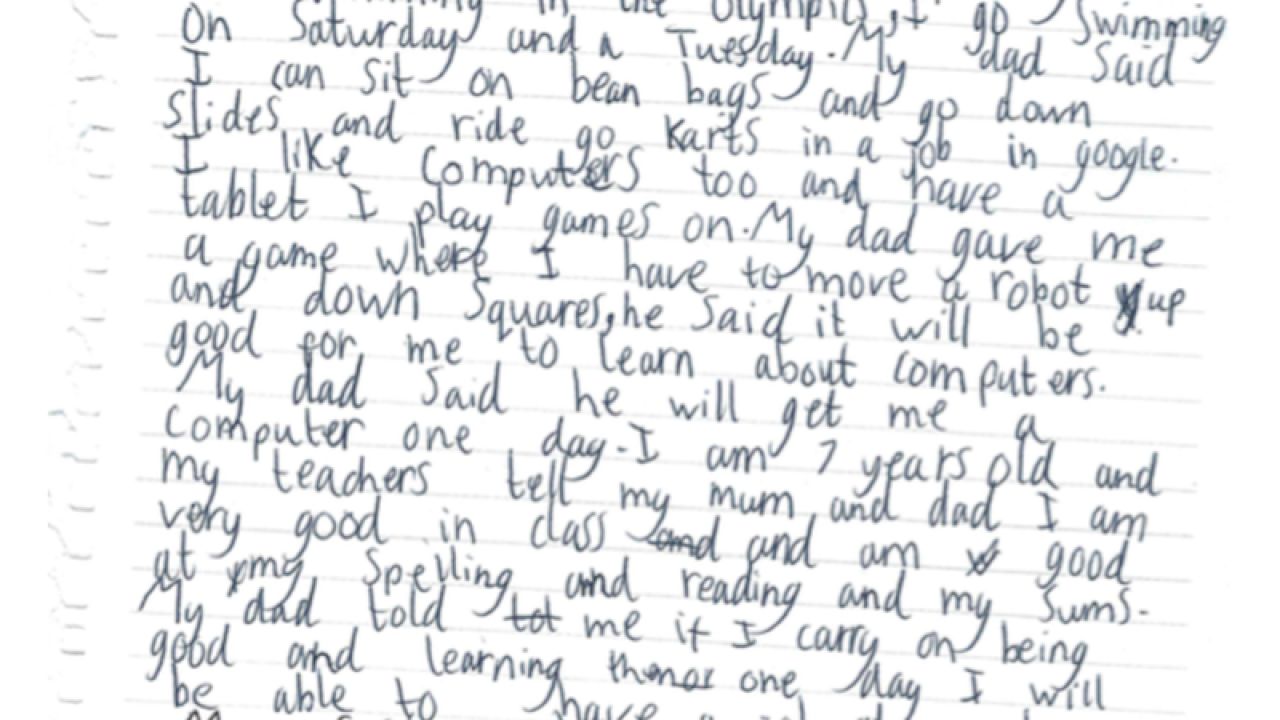 in the Olympics, I go Swimming
On Saturday and a Tuesday. My dad Said
I can Sit on bean bags and go down
Slides and ride go Karts in a job in google.
I like Computers too and have a
tablet I play games on. My dad gave me
a game where I have to move a robot up
and down Squares, he Said it will be
good for me to learn about computers.
My dad Said he will get me a
Computer one day. I am 7 years old and
my teachers tell my mum and dad I am
very good in class and and am good
at my Spelling and reading and my Sums.
My dad told tot me if I carry on being
good and learning one day I will
be able to have a